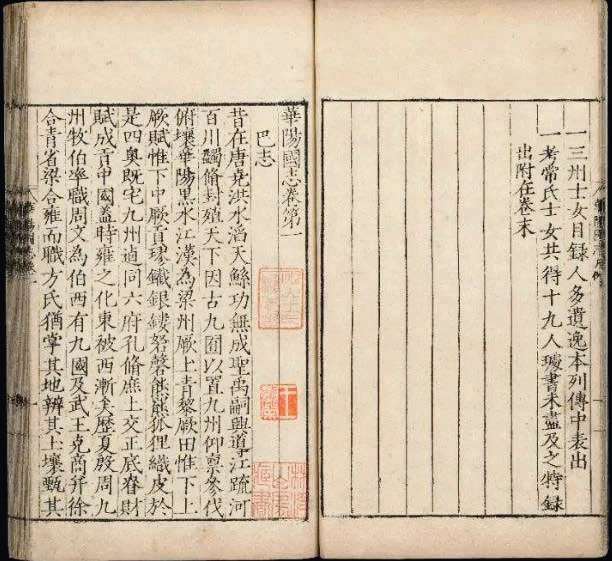 一三州士女目録人多遺逸本列傳中表出
一考常氏士女共得十九人璩書未盡及之特録
出附在卷末
華陽國志卷第一
巴志
昔在唐堯洪水滔天鯀功無成聖禹嗣興導江疏河
百川蠲脩封殖天下因古九囿以置九州仰禀參伐
俯壤華陽黑水江漢為梁州厥土青黎厥田惟下上
厥賦惟下中厥貢璆鐵銀鏤砮磬熊羆狐狸織皮於
是四奥既宅九州逌同六府孔脩庶土交正底慎財
賦成貢中國蓋時雍之化東被西漸矣歷夏殷周九
州牧伯率職周文為伯西有九國及武王克商并徐
合青省梁合雍而職方氏猶掌其地辨其土壤甄其